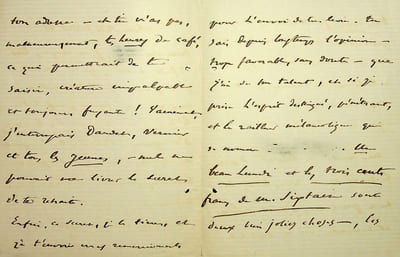 ton adresse — et tu n'as pas,
malheureusement, tes heures de café,
ce qui permettrait de te
saisir, créature impalpable
et toujours fuyante ! Vainement
j'interrogeais Daudet,
et tous les jeunes, — nul ne
pouvait me livrer le secret
de ta retraite.
Enfin, ce secret, je le tiens et
je t'envoie mes remerciements
pour l'envoi de ton livre. Tu
sais depuis longtemps l'opinion —
trop favorable, sans doute — que
j'ai de ton talent, et si je
prise l'esprit distingué, pénétrant,
et le railleur mélancolique qui
se nomme
beau Lundi et les trois cents
francs de M. sont
deux bien jolies choses —, les